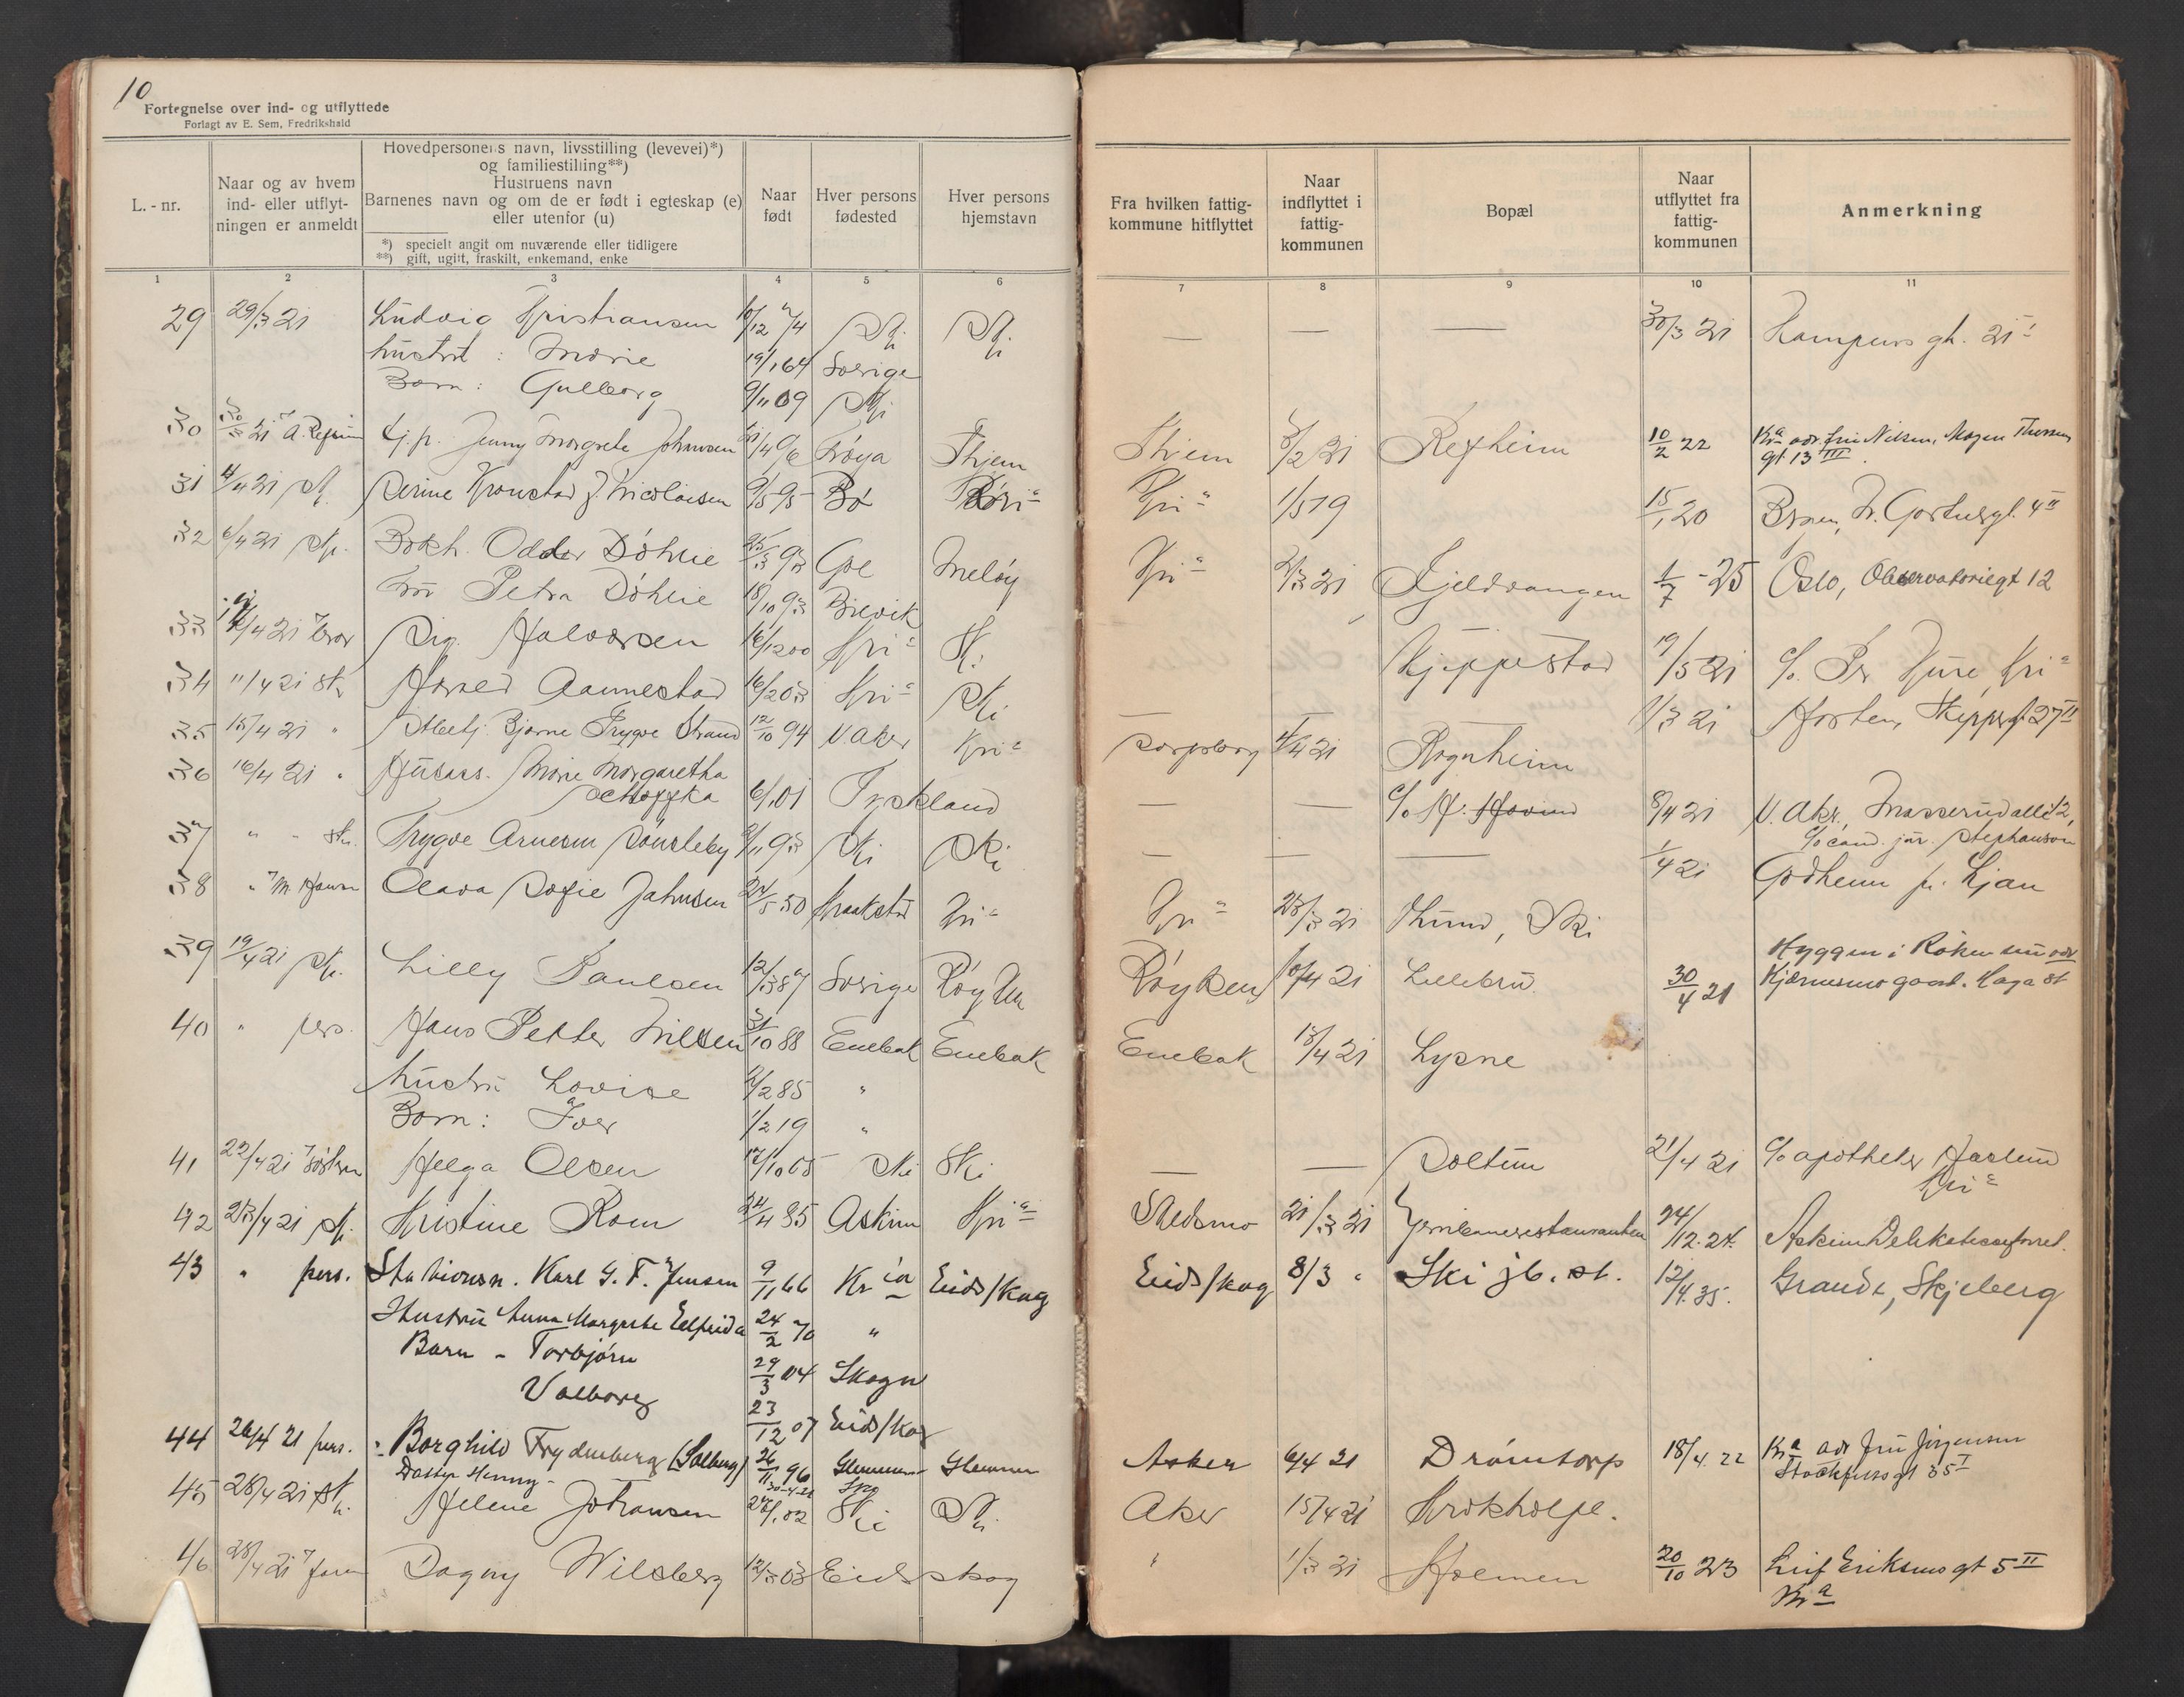 10
Fortegnelse over ind- og utflyttede
Forlagt av E. Sem, Fredrikshald
L.-nr.
Naar og av hvem ind- eller utflytningen er anmeldt
Hovedpersonens navn, livsstilling (levevei)*)
og familiestilling**)
Hustruens navn
Barnenes navn og om de er født i egteskap (e)
eller utenfor (u)
*) specielt angit om nuværende eller tidligere
**) gift, ugift, fraskilt, enkemand, enke
Naar født
Hver persons fødested
Hver persons hjemstavn
Fra hvilken fattigkommune hitflyttet
Naar indflyttet i fattigkommunen
Bopæl
Naar utflyttet fra fattigkommunen
Anmerkning
1 2 3 4 5 6 7 8 9 10 11
29 29/3 21 Ludvig Kristiansen 10/12 74 Ski Ski — — — 30/3 21 gt. 21
hustru : Marie 19/1 64 Sverige
Barn : Gulborg 9/11 09 Ski
30 30/3 21 Jenny Margrete Johansen Frøya Thjem Thjem 5/2 21 Rexheim 10/2 22 Kra adr. fru Nilsen, Mogen Thorsens
gt 13 III
31 4/4 21 Sk. Serine Kronstad f. Nicolaisen 9/5 95 Bö Kri-a Kri-a 1/5 19 15/1 20 4 II
32 6/4 21 Sk. Bokh. Odder Döhlie 25/3 93 Gol Meløy Kri-a 2/3 21 Kjeldvangen 1/7 - 25 Oslo, Observatoriegt 12
Fru Petra Döhlie 18/10 93 Brevik
33 /4 21 Sig. Halvorsen 16/12 00 Kri-a Ski Kjeppestad 19/5 21 c/o Kri-a
34 11/4 21 Sk Aannestad 16/2 03 Kri-a Ski — — 1/3 21 Horten, 27 II
35 15/4 21 " Bjarne Trygve Strand 12/10 94 V. Aker Kri-a Sarpsborg 4/4 21 Rognheim
36 16/4 21 " Husass. Marie Margaretha
6/1 01 Tyskland — — c/o H. Hovind 8/4 21 V. Akr. 12,
c/o cand. jur. Stephanson
37 " " sk. Trygve Arnesen Sönsteby 9/11 93 Ski Ski — — — 1/4 21 Godheim p. Ljan
38 " Olava Sofie Jahnsen 24/5 50 Kraakstad Kri-a Kri-a 23/3 21 Thund, Ski
39 19/4 21 Sk. Lilly Paulsen 12/3 87 Sverige Røyken Røyken 10/4 21 Lillebru. 30/4 21 Hyggen i Röken
Haga st
40 " pers. Hans Petter Nilsen 31/10 88 Enebak Enebak Enebak 13/4 21 Lysne
Hustru Lovise 2/2 85 "
Barn : Iver 1/2 19 "
41 22/4 21 Helga Olsen 17/10 65 Ski Ski — — Soltun 21/4 21 c/o apotheker
Kri-a
42 23/4 21 Sk. Kristine Rom 24/4 85 Askim Kri-a Skedsmo 21/3 21 Jernbanerestauranten 24/12. 24. Askim Delikatesseforret.
43 " pers. Stasionsm. Karl G. F. Jensen 9/11 66 Kr ia Eidskog Eidskog 8/3 " Ski jb. st. 12/4. 35. Grande, Skjeberg
Hustru Anna Margrete Elfrida 24/2 70 "
Barn - Torbjörn 29/3 04 Skogn
Valborg 23/12 07 Eidskog
44 26/4 21 pers. Borghild Frydenberg (Solberg) 26/11 96 Glemmen Glemmen Asker 6/4 21 Drömtorp 18/4. 22 Kra adr fru Jörgensen
Datter Henny - 30-4-21 Stockfletsgt 35 I
45 28/4 21 Sk. Helene Johansen 02 Ski Ski Aker 15/4 21 Krokholje.
46 28/4 21 Dagny Wilsberg 12/3 03 Eidskog " 1/3 21 Holmen 20/10 23 Leif Eriksens gt 5 II
Kra